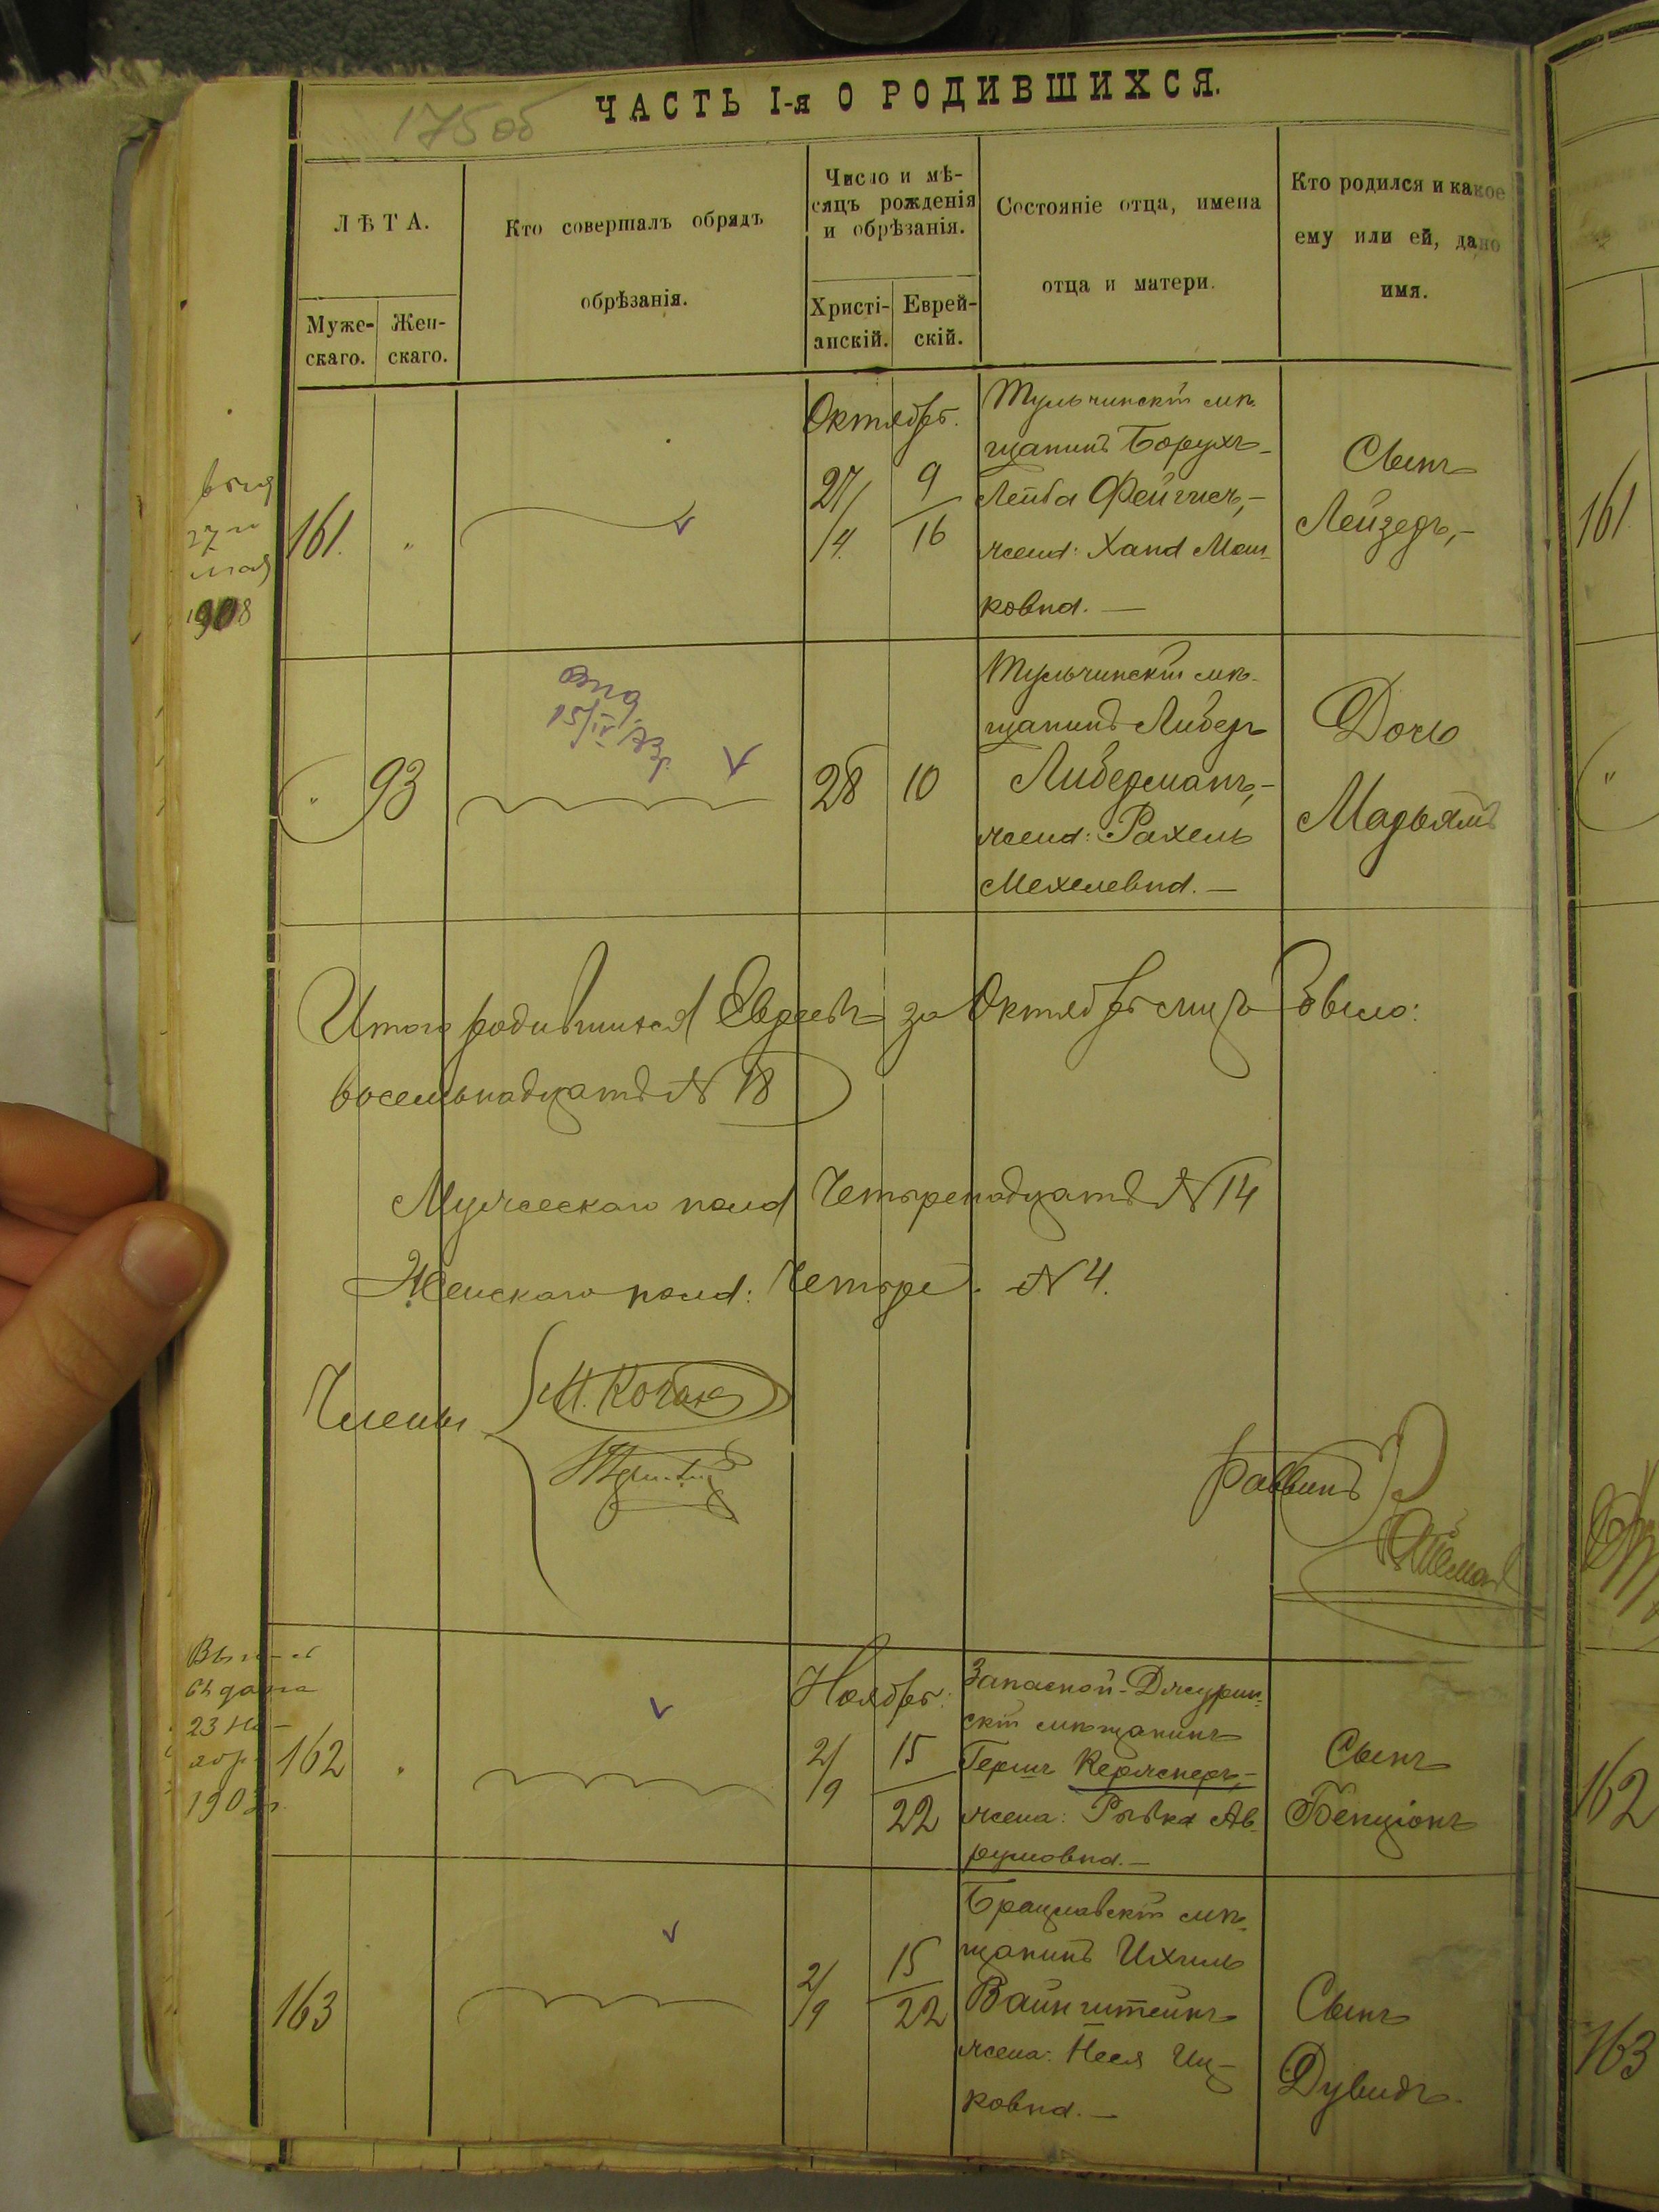 175 об
ЧАСТЬ I-я О РОДИВШИХСЯ.
ЛѢТА.
Муже-
скаго.
Жен-
скаго.
Кто совершалъ обрядъ
обрѣзанія.
Число и мѣ-
сяцъ рожденія
и обрѣзанія.
Христі-
анскій.
Еврей-
скій.
Состояніе отца, имена
отца и матери.
Кто родился и какое
ему или ей, дано
имя.
27 го
мая
1908
161.
"
Октябрь.
27/
/4.
9
16
Тульчинскій мѣ-
щанинъ Борухъ-
Лейба Фейгисъ,-
жена: Хана Мош-
ковна. —
Сынъ
Лейзеръ,-
161
"
93
15/IV 73г.
28
10
Тульчинскій мѣ-
щанинъ Либеръ
Либерманъ,-
жена: Рахель
Мехелевна. —
Дочь
Марьямъ
"
Итого родившихся Евреевъ за Октябрь мцъ было:
восемьнадцать № 18
Мужескаго пола Четыренадцать № 14
Женскаго пола: Четыре. № 4.
Члены
Раввинъ
23 Но-
ябр
1903г.
162
Ноябрь:
2/
/9
15
22
Запасной-Джурин-
скій мѣщанинъ
Гершъ Кержнеръ,-
жена: Ривка Ав-
румовна. —
Сынъ
Бенціонъ
162
163
2/
/9
15
22
Брацлавскій мѣ-
щанинъ Ихиль
Вайнштейнъ
жена: Неся Иц-
ковна. —
Сынъ
Дувидъ.
163